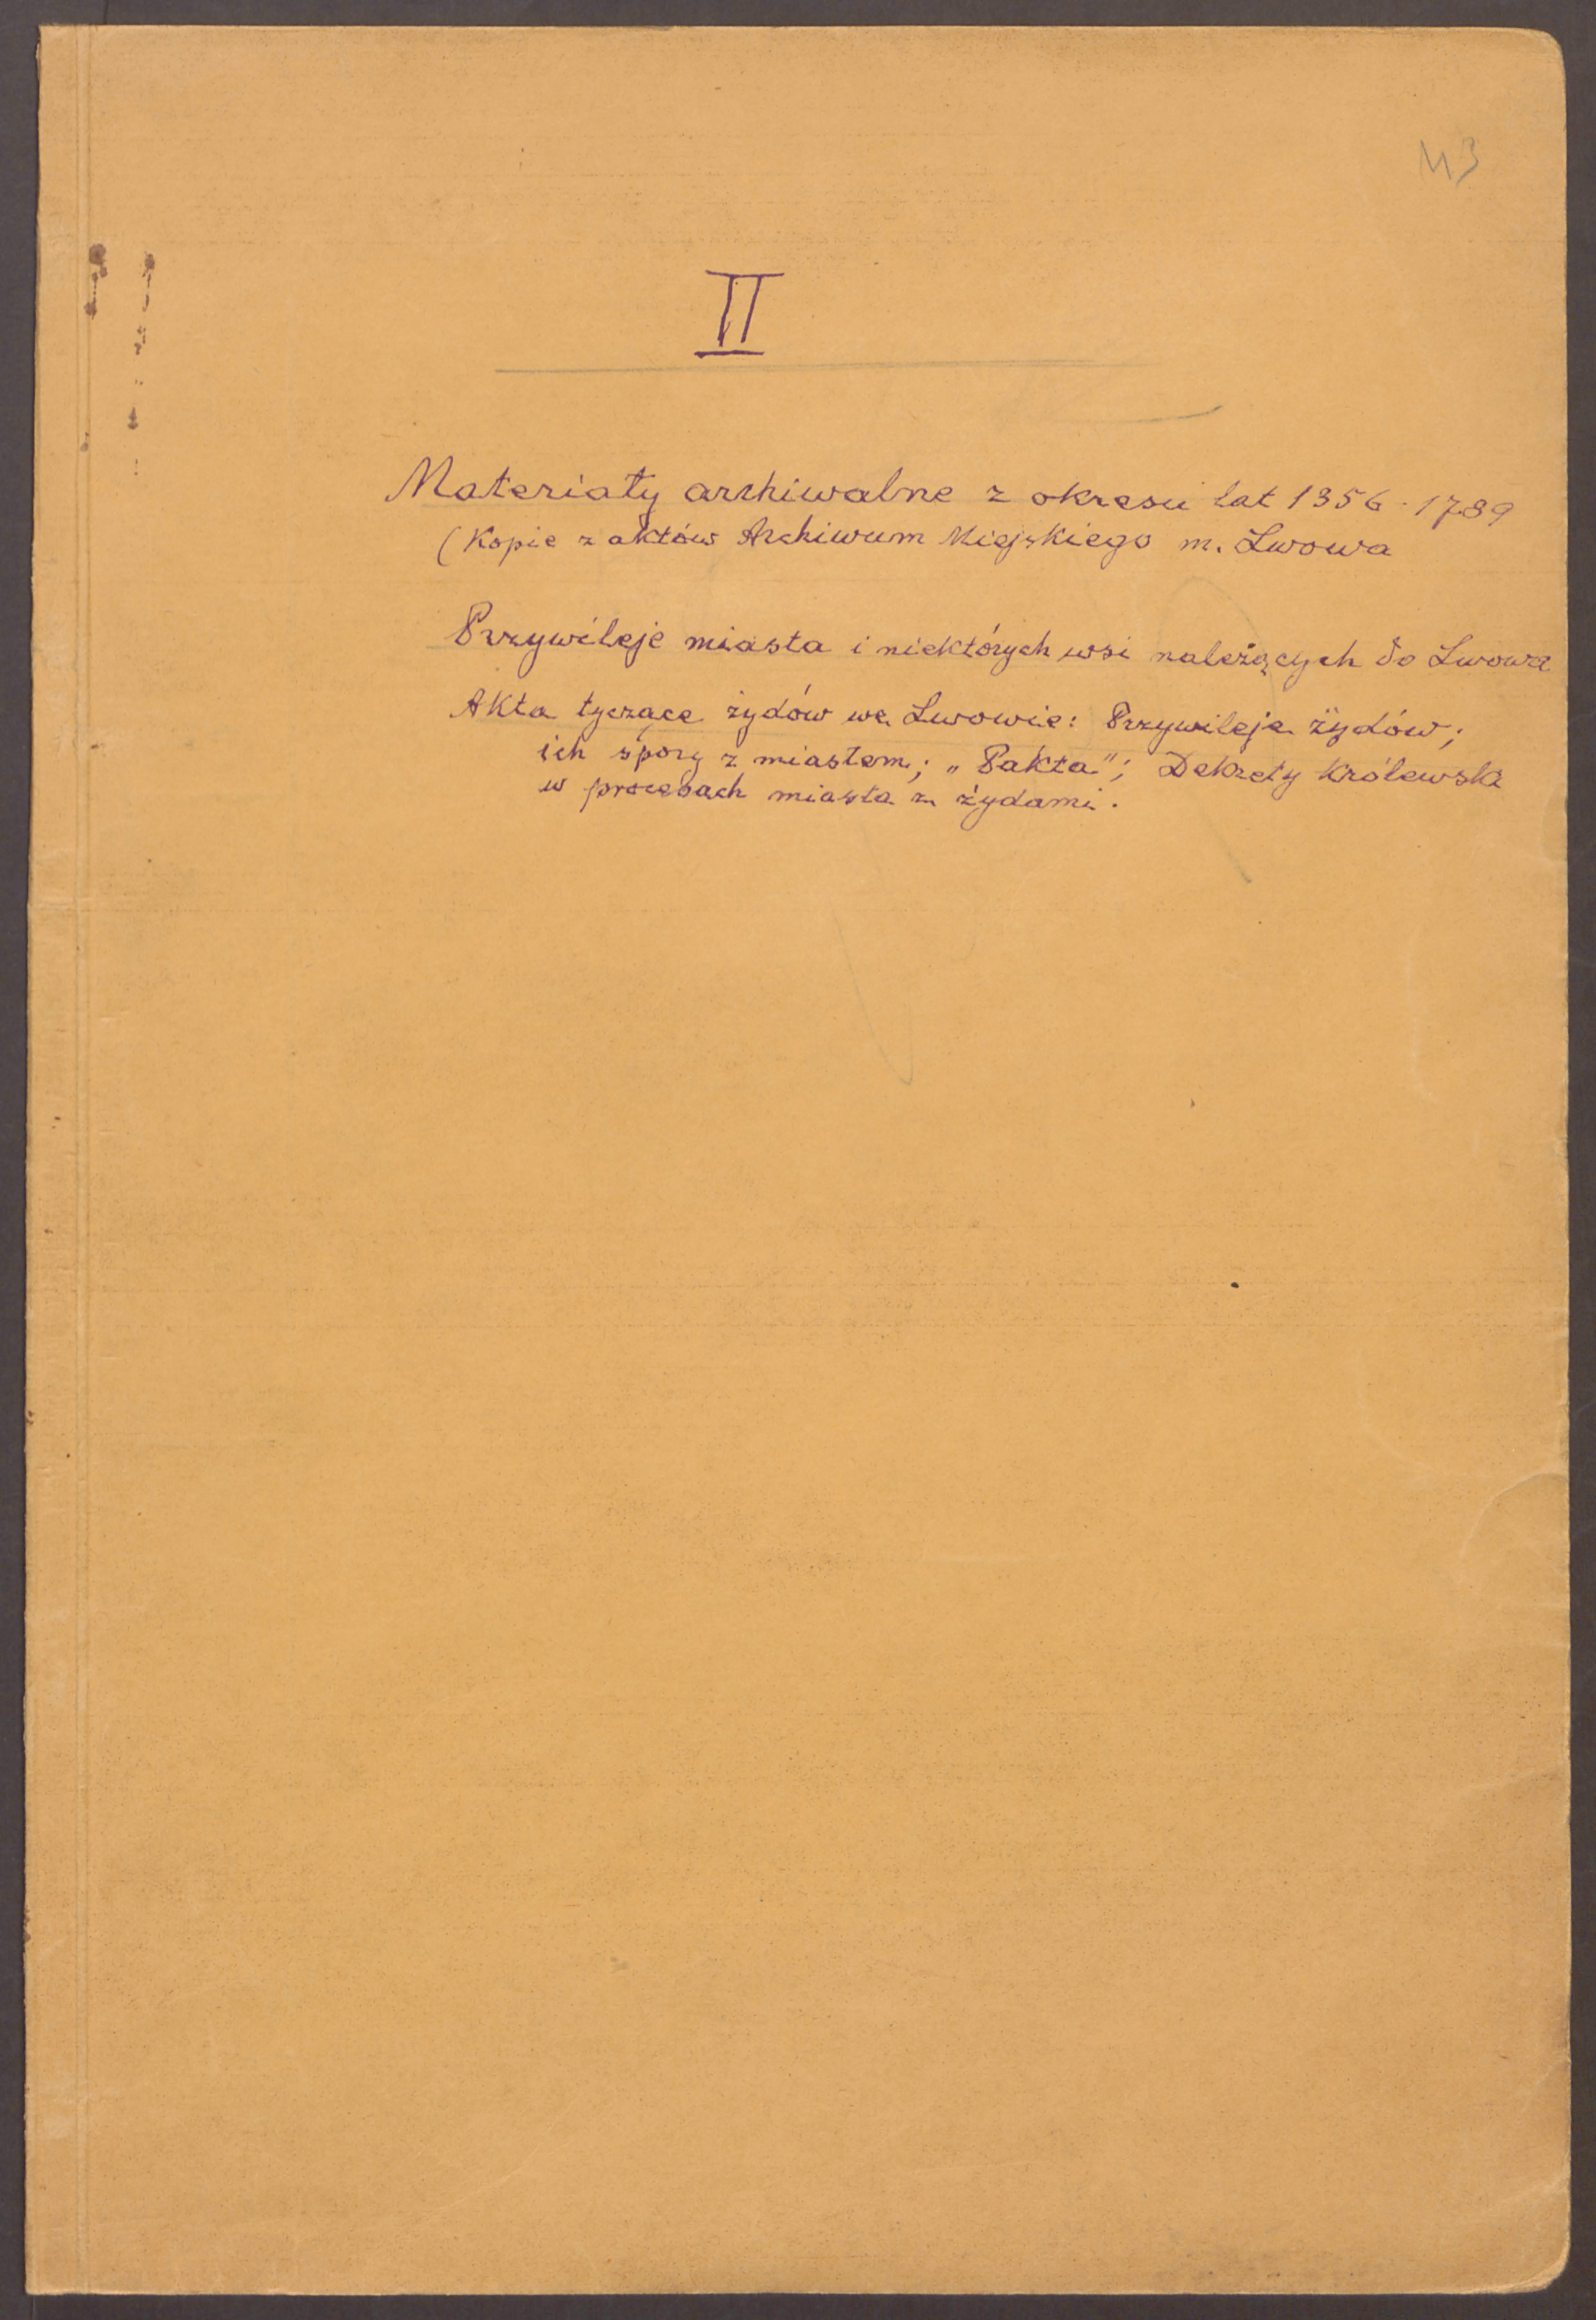 43
II
Materiały archiwalne z okresu lat 1356-1789
(Kopie z aktów Archiwum Miejskiego m. Lwowa
Przywileje miasta i niektórych wsi należących do Lwowa
Akta tyczące żydów we Lwowie: Przywileje żydów;
ich spory z miastem; „Pakta"; Dekrety Królewskie
w procesach miasta z żydami.